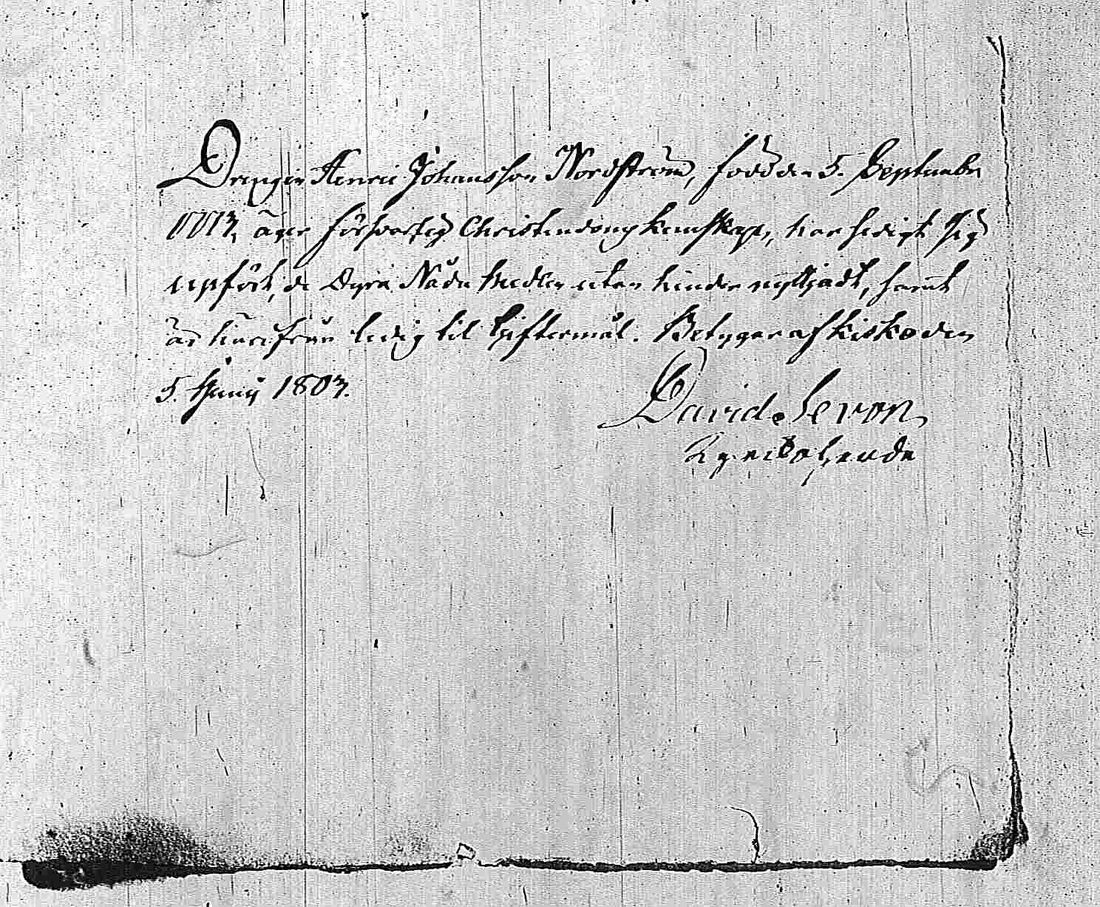 Drengen Henric Johansson Nordström, född den 5. September
1773, äger försvarlig Christendoms kunskap, har sedigt sig
upfört, de Dyra Nåde Medlen utan hinder nyttjadt, samt
är härifrån ledig til Giftermål. Betygar af Kisko den
5. Junij 1803.
David Levon